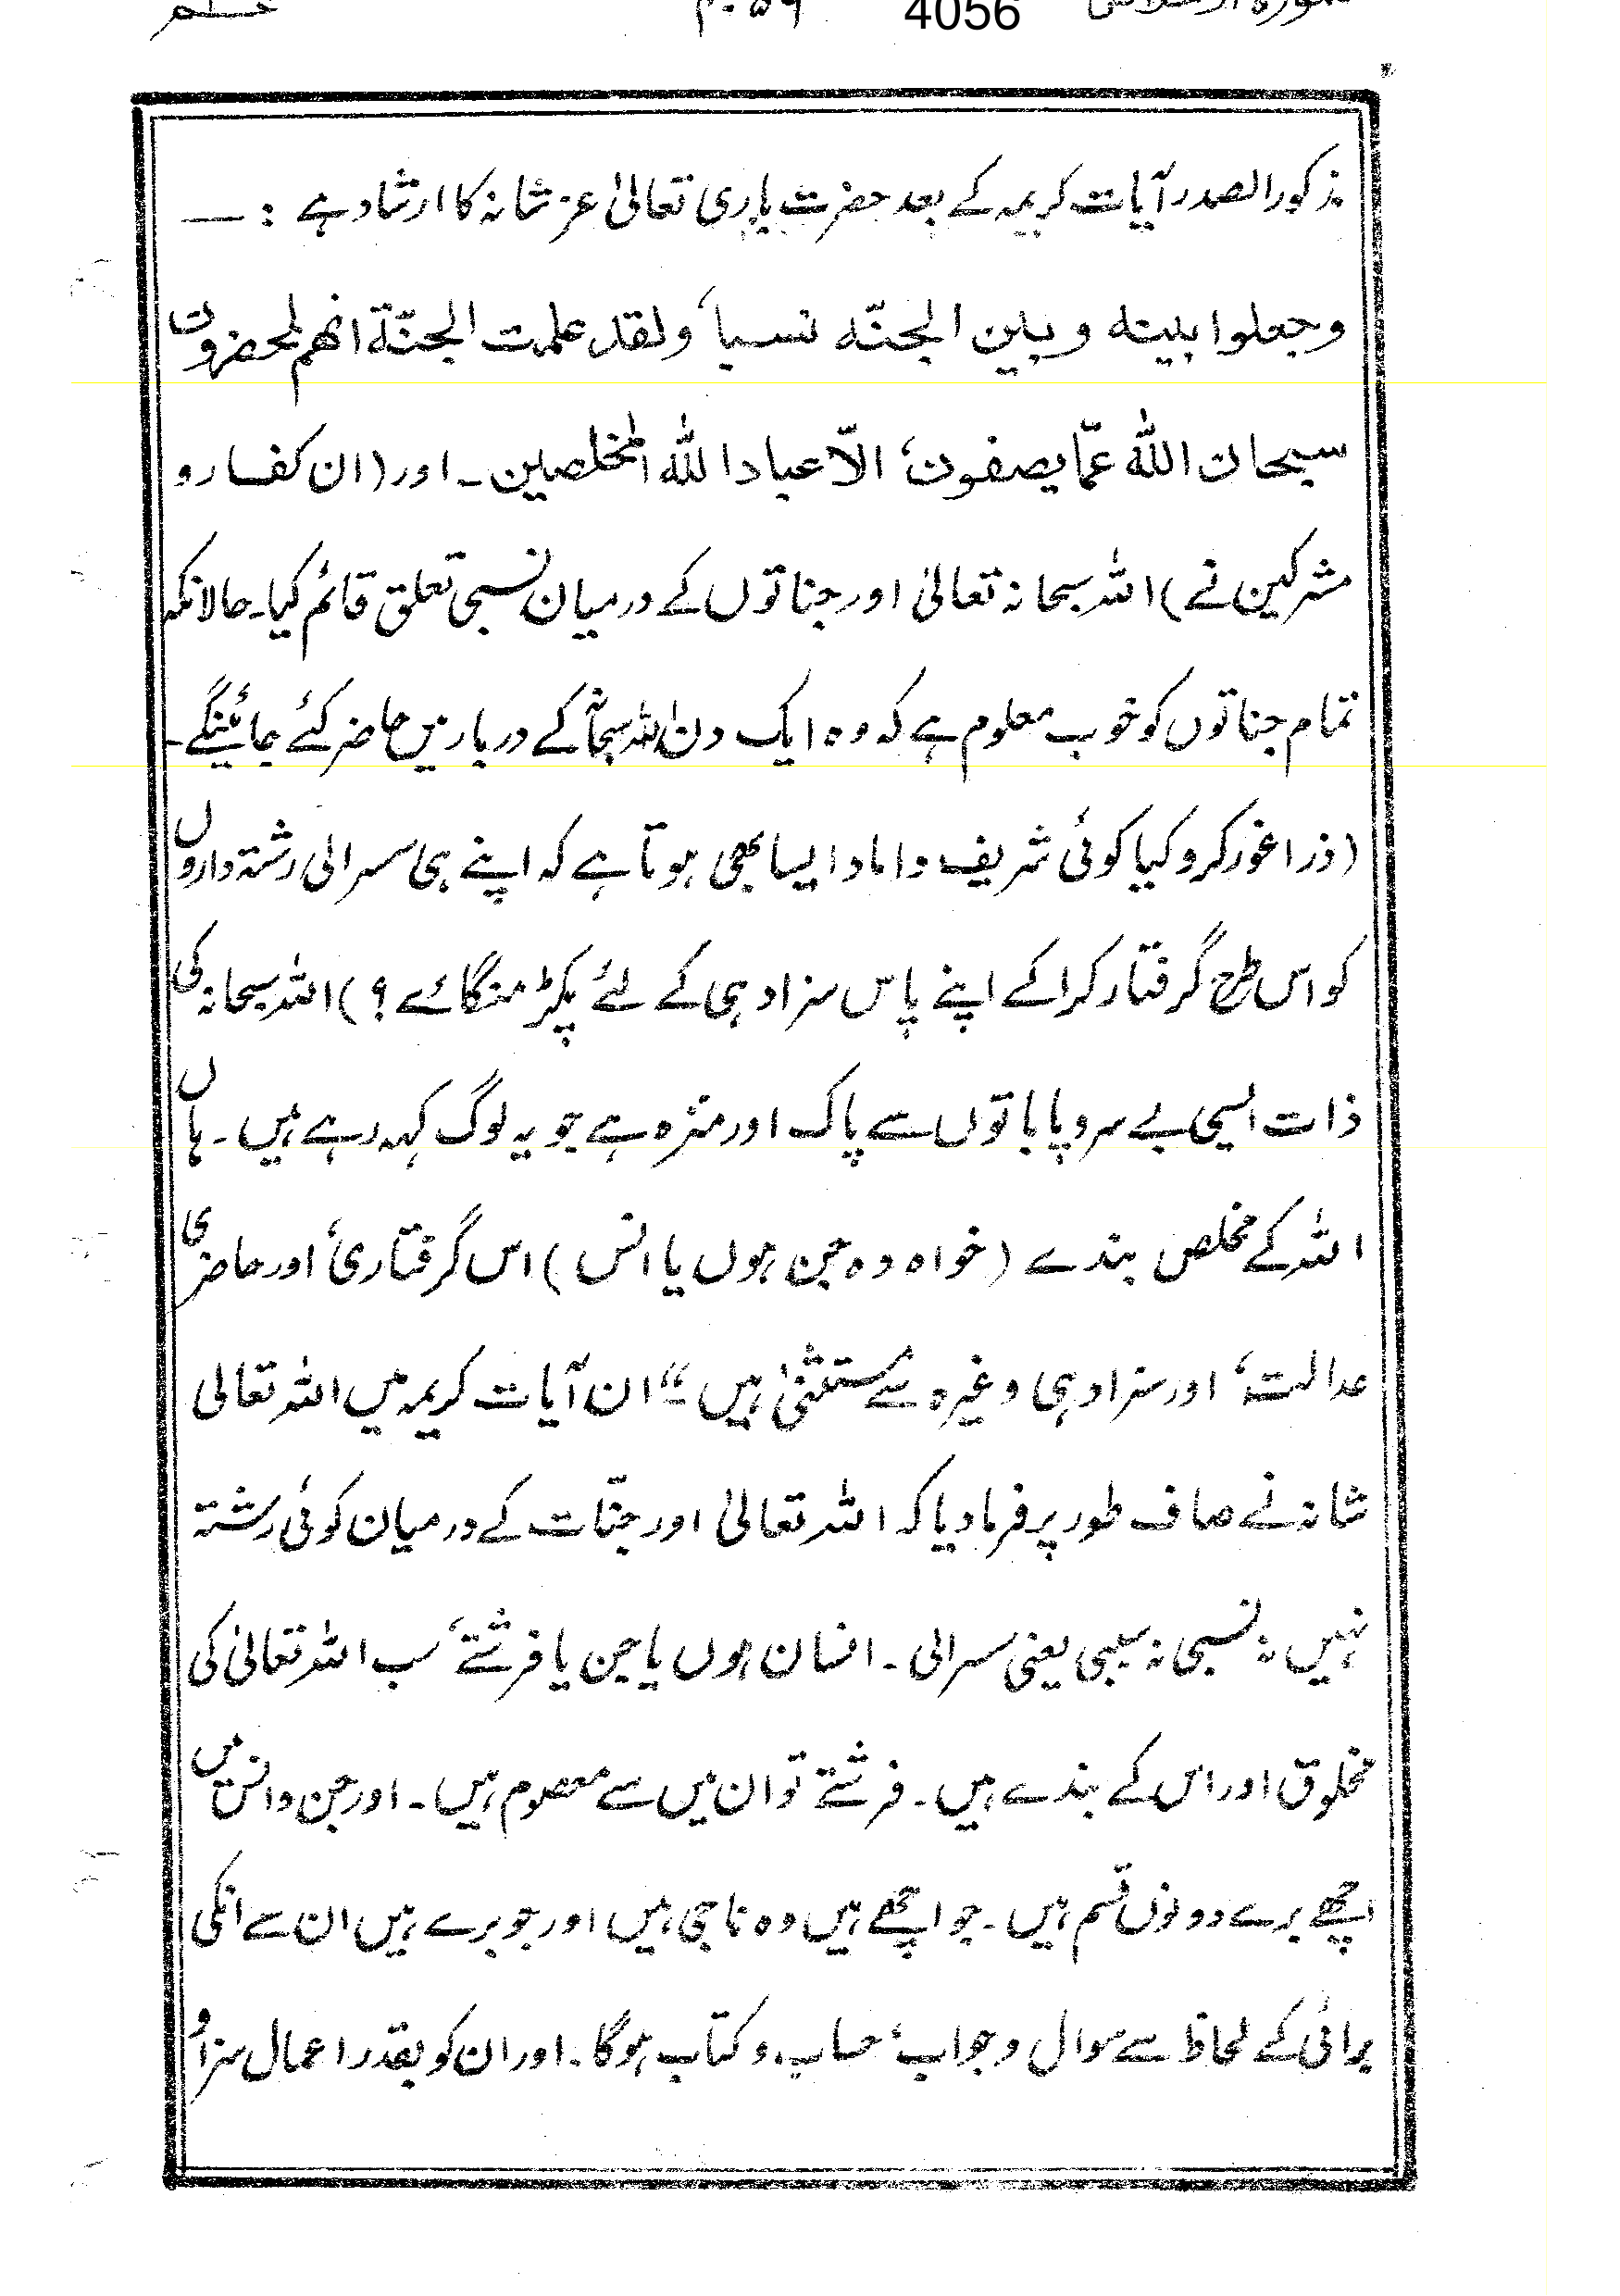 سورۃ الاخلاص 4056 ۴۰۵۶
مذکورالصدر آیات کریمہ کے بعد حضرت باری تعالیٰ عز شانہ کا ارشاد ہے : —
وجعلوا بینہ وبین الجنّہ نسبا، ولقد علمت الجنّۃ انھم لمحضرون
سبحان اللہ عمّا یصفون، الّا عباد اللہ المخلصین ۔ اور (ان کفار و
مشرکین نے) اللہ سبحانہ تعالیٰ اور جناتوں کے درمیان نسبی تعلق قائم کیا۔ حالانکہ
تمام جناتوں کو خوب معلوم ہے کہ وہ ایک دن اللہ سبحانہٗ کے دربار میں حاضر کئے جائینگے۔
(ذرا غور کرو کیا کوئی شریف داماد ایسا بھی ہوتا ہے کہ اپنے ہی سسرالی رشتہ داروں
کو اس طرح گرفتار کرا کے اپنے پاس سزا دہی کے لئے پکڑ منگائے ؟) اللہ سبحانہ کی
ذات ایسی بے سروپا باتوں سے پاک اور منزہ ہے جو یہ لوگ کہہ رہے ہیں ۔ ہاں
اللہ کے مخلص بندے (خواہ وہ جن ہوں یا انس) اس گرفتاری، اور حاضری
عدالت، اور سزا دہی وغیرہ سے مستثنیٰ ہیں ‘‘ ان آیات کریمہ میں اللہ تعالی
شانہ نے صاف طور پر فرما دیا کہ اللہ تعالیٰ اور جنّات کے درمیان کوئی رشتہ
نہیں نہ نسبی نہ سببی یعنی سسرالی ۔ انسان ہوں یا جن یا فرشتے، سب اللہ تعالیٰ کی
مخلوق اور اس کے بندے ہیں ۔ فرشتے تو ان میں سے معصوم ہیں ۔ اور جن و انس میں
اچھے برے دونوں قسم ہیں ۔ جو اچھے ہیں وہ ناجی ہیں اور جو برے ہیں ان سے انکی
برائی کے لحاظ سے سوال و جواب، حساب و کتاب ہوگا ۔ اور ان کو بقدر اعمال سزا